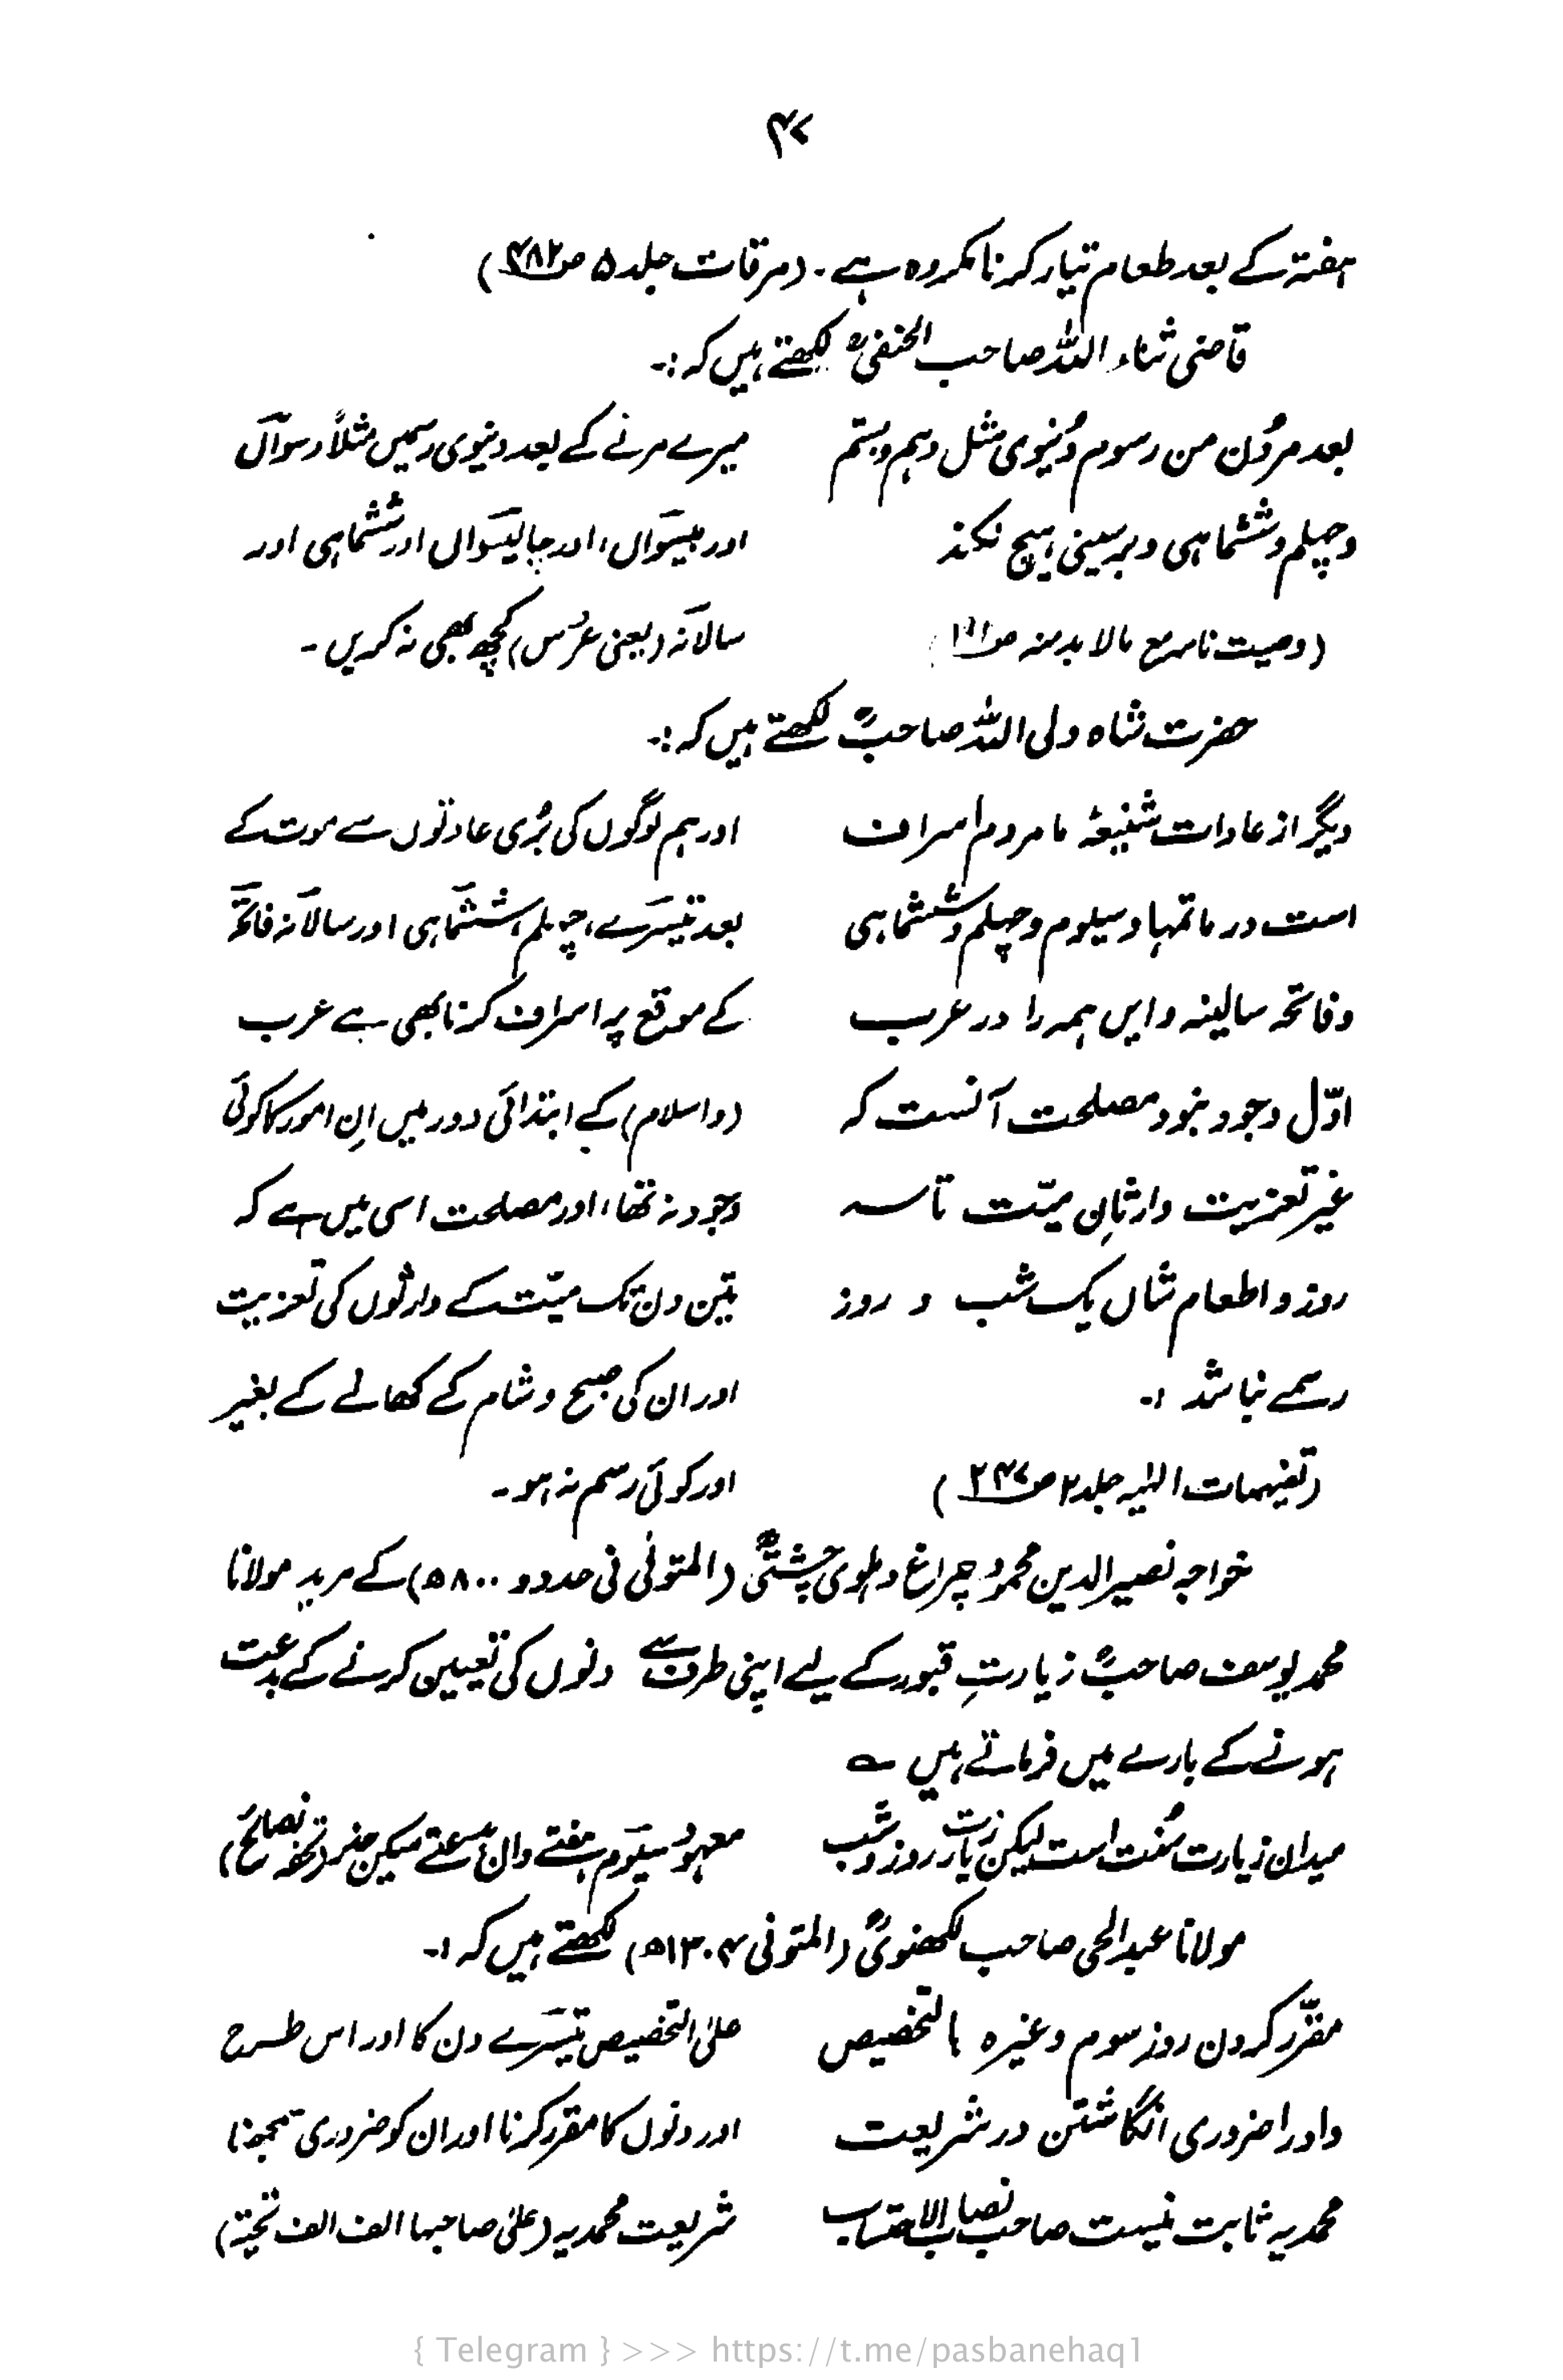 ۴۷
ہفتہ کے بعد طعام تیار کرنا مکروہ ہے۔ (مرقات جلد ۵ ص۴۸۲)
قاضی ثناء اللہ صاحب الحنفیؒ لکھتے ہیں کہ:۔
بعد مردُن من رسوم دُنیوی مثل دہم و بستم
و چہلم و ششماہی و برسینی ہیچ نکند
(وصیت نامہ مع مالا بدمنہ
میرے مرنے کے بعد دنیوی رسمیں مثلاً دسواں
اور بیسواں، اور چالیسواں اور ششماہی اور
سالانہ (یعنی عُرس) کچھ بھی نہ کریں۔
حضرت شاہ ولی اللہ صاحبؒ لکھتے ہیں کہ:۔
دیگر از عادات شنیعۂ ما مردم اسراف
است در ماتمہا و سیلوم و چہلم و ششماہی
و فاتحہ سالینہ و ایں ہمہ را در عرب
اوّل وجود نبود مصلحت آنست کہ
غیر تعزیت وارثانِ میّت تا سہ
روز و اطعام شاں یک شب و روز
رسمے نباشد :۔
(تفہیمات الٰہیہ جلد ۲ ص۲۴۷)
اور ہم لوگوں کی بُری عادتوں سے موت کے
بعد تیسرے، چہلم، ششماہی اور سالانہ فاتحہ
کے موقع پر اسراف کرنا بھی ہے عرب
(و اسلام) کے ابتدائی دور میں اِن امور کا کوئی
وجود نہ تھا، اور مصلحت اسی میں ہے کہ
تین دن تک میّت کے وارثوں کی تعزیت
اور ان کی صبح و شام کے کھانے کے بغیر
اور کوئی رسم نہ ہو۔
خواجہ نصیر الدین محمود چراغ دہلوی چشتیؒ (المتوفی فی حدود ۸۰۰ھ) کے مرید مولانا
محمد یوسف صاحبؒ زیارتِ قبور کے لیے اپنی طرف سے دنوں کی تعیین کرنے کے بدعت
ہونے کے بارے میں فرماتے ہیں ؎
میداں زیارت سُنت است لیکن زیارت روز و شب
معہود سیوم ہفتے داں بدعتے میکن حذر (تحفہ نصائح)
مولانا عبدالحی صاحب لکھنویؒ (المتوفی ۱۳۰۴ھ) لکھتے ہیں کہ :۔
مقرّر کردن روز سوم وغیرہ بالتخصیص
و او را ضروری انگاشتن در شریعت
محمدیہ ثابت نیست صاحب نصاب الاحتساب
علیٰ التخصیص تیسرے دن کا اور اس طرح
اور دنوں کا مقرر کرنا اور ان کو ضروری سمجھنا
شریعت محمدیہ (علیٰ صاحبہا الف الف تحیّۃ)
{ Telegram } >>> https://t.me/pasbanehaq1